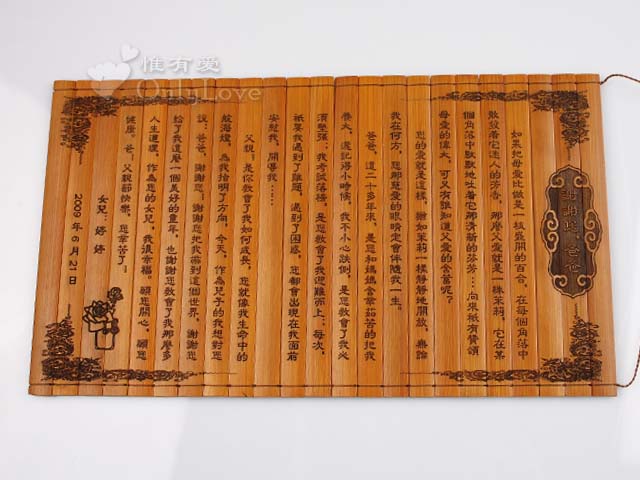 惟有愛
OnlyLove
謝謝您，爸爸
如果把母愛比做是一枝盛開的百合，在每個角落中
散發着它迷人的芳香，那麼父愛就是一株茉莉，它在某
個角落中默默地吐着它那清新的芬芳…向來衹有贊頌
母愛的偉大，可又有誰知道父愛的含蓄呢？
您的愛就是這樣，猶如茉莉一樣靜靜地開放，無論
我在何方，您那慈愛的眼睛定會伴隨我一生。
爸爸，這二十多年來，是您和媽媽含辛茹苦的把我
養大，還記得小時候，我不小心跌倒，是您教會了我必
須堅強；我考試落榜，是您教會了我迎難而上；每次，
衹要我遇到了難題，遇到了困惑，您都會出現在我面前
安慰我，開導我……
父親！是你教會了我如何成長，您就像我生命中的
航海燈，為我指明了方向，今天，作為兒子的我想對您
說：爸爸，謝謝您！謝謝您把我帶到這個世界，謝謝您
給了我這麼一個美好的童年，也謝謝您教會了我那麼多
人生道理，作為您的女兒，我很幸福。願您開心，願您
健康。爸！父親節快樂，您辛苦了！
女兒：婷婷
2009年6月21日